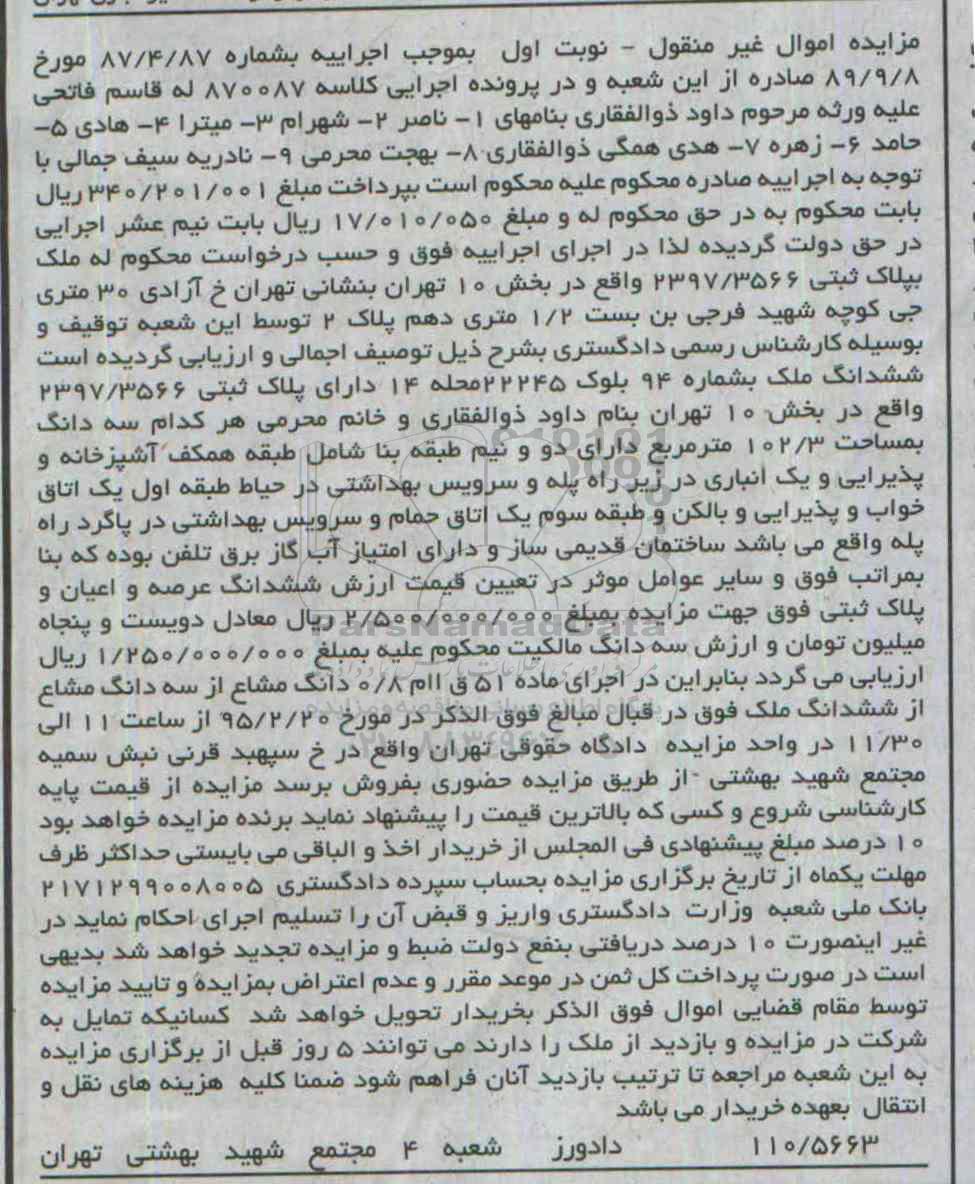 مزایده اموال غیر منقول - نوبت اول بموجب اجراییه بشماره ۸۷/۴/۸۷ مورخ
۸۹/۹/۸ صادره از این شعبه و در پرونده اجرایی کلاسه ۸۷۰۰۸۷ له قاسم فاتحی
علیه ورثه مرحوم داود ذوالفقاری بنامهای ۱- ناصر ۲- شهرام ۳- میترا ۴- هادی ۵-
حامد ۶- زهره ۷- هدی همگی ذوالفقاری ۸- بهجت محرمی ۹- نادریه سیف جمالی با
توجه به اجراییه صادره محکوم علیه محکوم است بپرداخت مبلغ ۳۴۰/۲۰۱/۰۰۱ ریال
بابت محکوم به در حق محکوم له و مبلغ ۱۷/۰۱۰/۰۵۰ ریال بابت نیم عشر اجرایی
در حق دولت گردیده لذا در اجرای اجراییه فوق و حسب درخواست محکوم له ملک
بپلاک ثبتی ۲۳۹۷/۳۵۶۶ واقع در بخش ۱۰ تهران بنشانی تهران خ آزادی ۳۰ متری
جی کوچه شهید فرجی بن بست ۱/۲ متری دهم پلاک ۲ توسط این شعبه توقیف و
بوسیله کارشناس رسمی دادگستری بشرح ذیل توصیف اجمالی و ارزیابی گردیده است
ششدانگ ملک بشماره ۹۴ بلوک ۲۲۲۴۵محله ۱۴ دارای پلاک ثبتی ۲۳۹۷/۳۵۶۶
واقع در بخش ۱۰ تهران بنام داود ذوالفقاری و خانم محرمی هر کدام سه دانگ
بمساحت ۱۰۲/۳ مترمربع دارای دو و نیم طبقه بنا شامل طبقه همکف آشپزخانه و
پذیرایی و یک انباری در زیر راه پله و سرویس بهداشتی در حیاط طبقه اول یک اتاق
خواب و پذیرایی و بالکن و طبقه سوم یک اتاق حمام و سرویس بهداشتی در پاگرد راه
پله واقع می باشد ساختمان قدیمی ساز و دارای امتیاز آب گاز برق تلفن بوده که بنا
بمراتب فوق و سایر عوامل موثر در تعیین قیمت ارزش ششدانگ عرصه و اعیان و
پلاک ثبتی فوق جهت مزایده بمبلغ ۲/۵۰۰/۰۰۰/۰۰۰ ریال معادل دویست و پنجاه
میلیون تومان و ارزش سه دانگ مالکیت محکوم علیه بمبلغ ۱/۲۵۰/۰۰۰/۰۰۰ ریال
ارزیابی می گردد بنابراین در اجرای ماده ۵۱ ق اام ۰/۸ دانگ مشاع از سه دانگ مشاع
از ششدانگ ملک فوق در قبال مبالغ فوق الذکر در مورخ ۹۵/۲/۲۰ از ساعت ۱۱ الی
۱۱/۳۰ در واحد مزایده دادگاه حقوقی تهران واقع در خ سپهبد قرنی نبش سمیه
مجتمع شهید بهشتی از طریق مزایده حضوری بفروش برسد مزایده از قیمت پایه
کارشناسی شروع و کسی که بالاترین قیمت را پیشنهاد نماید برنده مزایده خواهد بود
۱۰ درصد مبلغ پیشنهادی فی المجلس از خریدار اخذ و الباقی می بایستی حداکثر ظرف
مهلت یکماه از تاریخ برگزاری مزایده بحساب سپرده دادگستری ۲۱۷۱۲۹۹۰۰۸۰۰۵
بانک ملی شعبه وزارت دادگستری واریز و قبض آن را تسلیم اجرای احکام نماید در
غیر اینصورت ۱۰ درصد دریافتی بنفع دولت ضبط و مزایده تجدید خواهد شد بدیهی
است در صورت پرداخت کل ثمن در موعد مقرر و عدم اعتراض بمزایده و تایید مزایده
توسط مقام قضایی اموال فوق الذکر بخریدار تحویل خواهد شد کسانیکه تمایل به
شرکت در مزایده و بازدید از ملک را دارند می توانند ۵ روز قبل از برگزاری مزایده
به این شعبه مراجعه تا ترتیب بازدید آنان فراهم شود ضمنا کلیه هزینه های نقل و
انتقال بعهده خریدار می باشد
۱۱۰/۵۶۶۳ دادورز شعبه ۴ مجتمع شهید بهشتی تهران
ParsNamadData